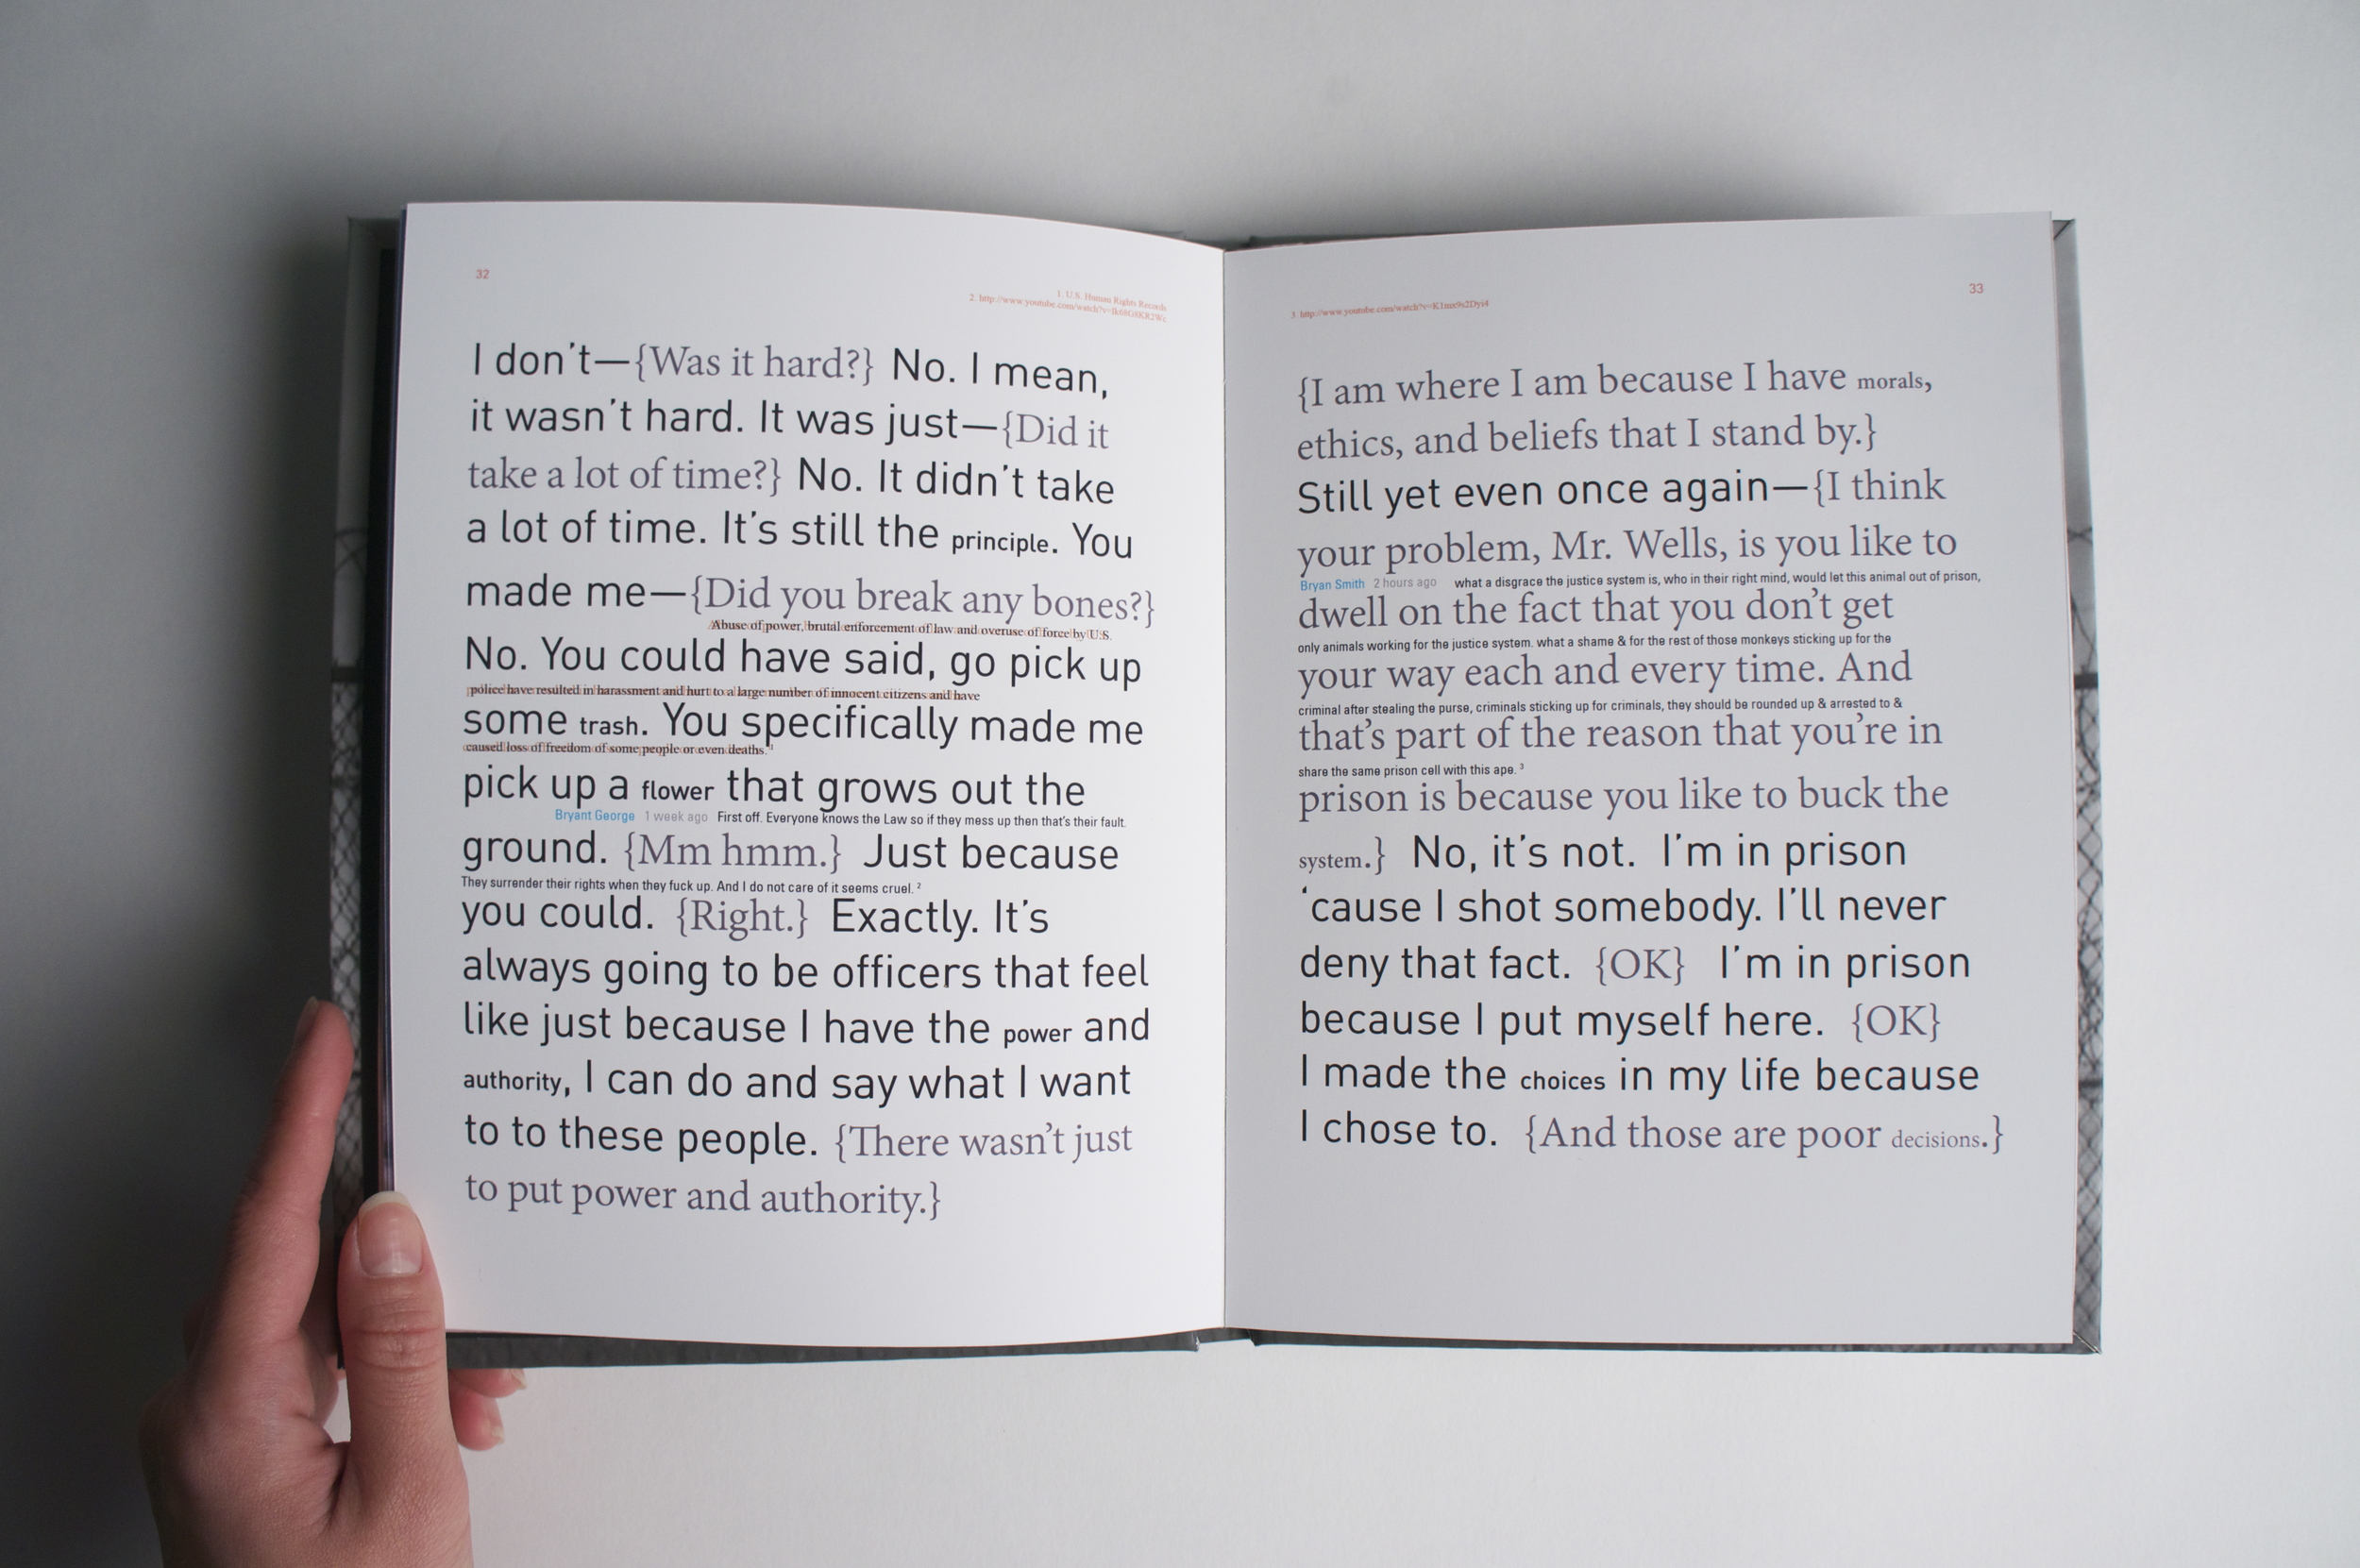 32
1. U.S. Human Rights Records
2. http://www.youtube.com/watch?v=
I don't—{Was it hard?} No. I mean,
it wasn't hard. It was just—{Did it
take a lot of time?} No. It didn't take
a lot of time. It's still the principle. You
made me—{Did you break any bones?}
Abuse of power, brutal enforcement of law and overuse of force by U.S.
No. You could have said, go pick up
police have resulted in harassment and hurt to a large number of innocent citizens and have
some trash. You specifically made me
caused loss of freedom of some people or even deaths."1
pick up a flower that grows out the
Bryant George 1 week ago First off. Everyone knows the Law so if they mess up then that's their fault.
ground. {Mm hmm.} Just because
They surrender their rights when they fuck up. And I do not care of it seems cruel. 2
you could. {Right.} Exactly. It's
always going to be officers that feel
like just because I have the power and
authority, I can do and say what I want
to to these people. {There wasn't just
to put power and authority.}
33
3. http://www.youtube.com/watch?v=
{I am where I am because I have morals,
ethics, and beliefs that I stand by.}
Still yet even once again—{I think
your problem, Mr. Wells, is you like to
Bryan Smith 2 hours ago what a disgrace the justice system is, who in their right mind, would let this animal out of prison,
dwell on the fact that you don't get
only animals working for the justice system. what a shame & for the rest of those monkeys sticking up for the
your way each and every time. And
criminal after stealing the purse, criminals sticking up for criminals, they should be rounded up & arrested to &
that's part of the reason that you're in
share the same prison cell with this ape. 3
prison is because you like to buck the
system.} No, it's not. I'm in prison
'cause I shot somebody. I'll never
deny that fact. {OK} I'm in prison
because I put myself here. {OK}
I made the choices in my life because
I chose to. {And those are poor decisions.}